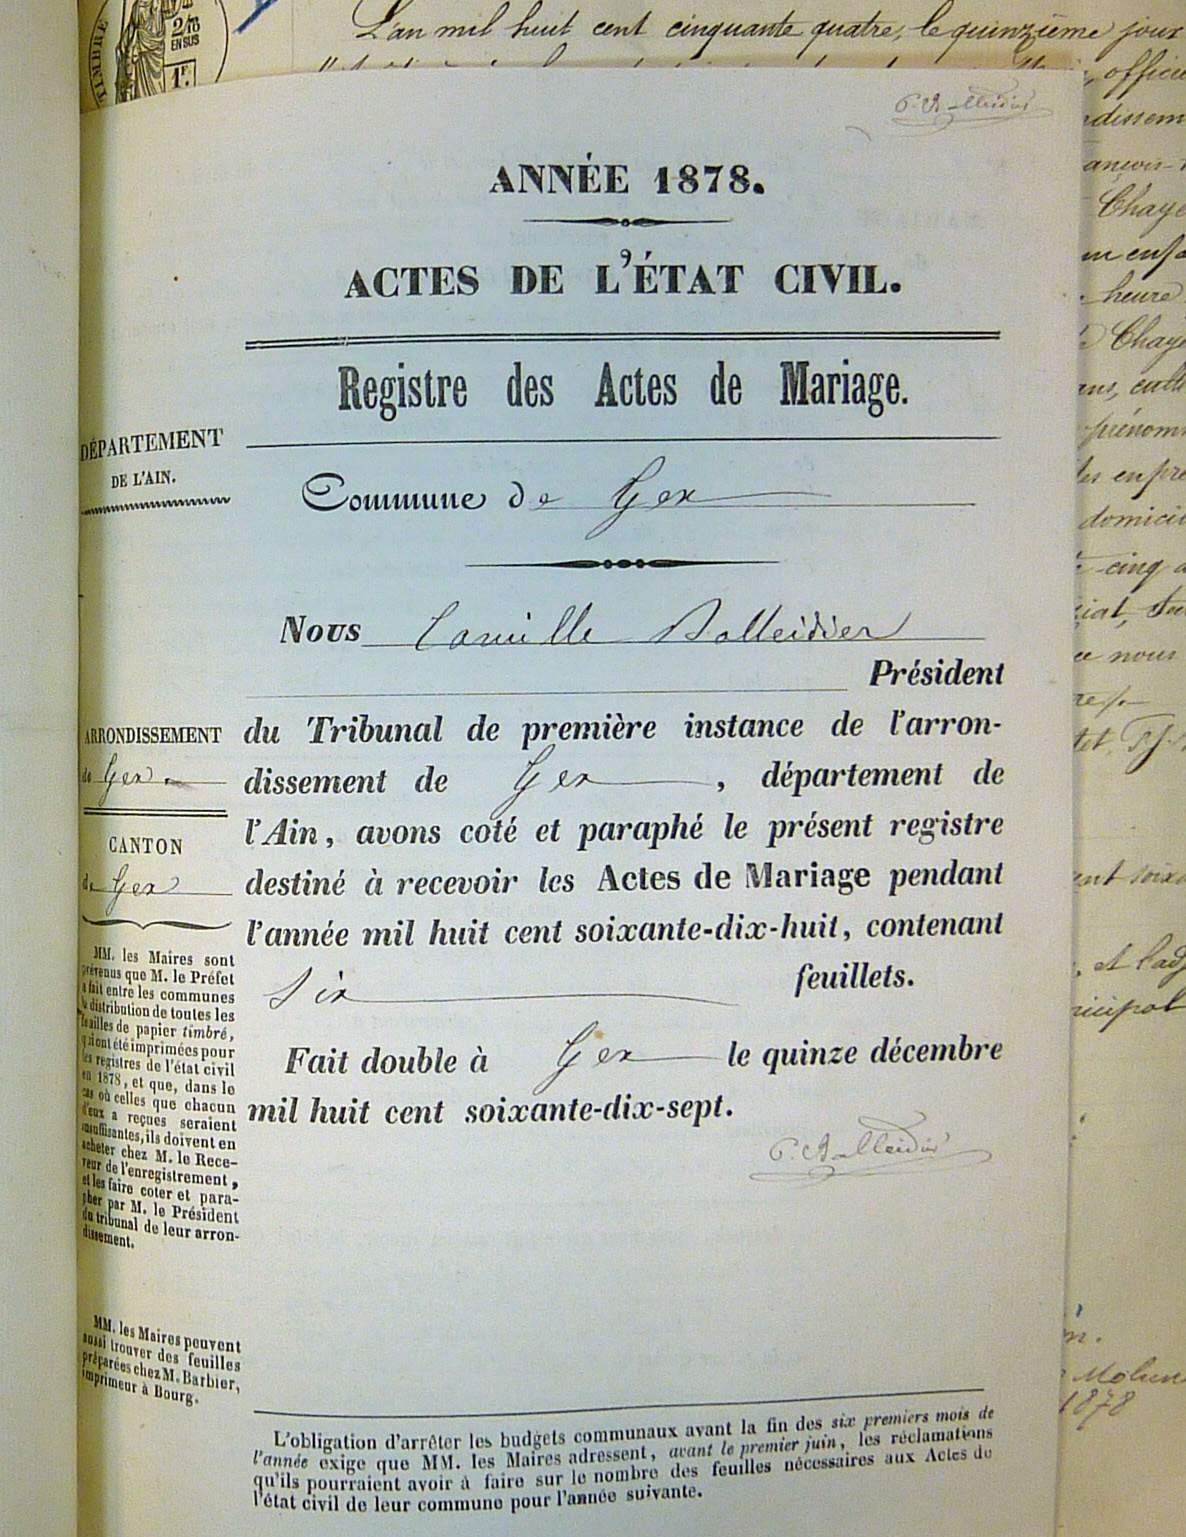 TIMBRE
2/10
EN SUS
1F.
L'an mil huit cent cinquante quatre, le quinzième jour
C. Balleidier
officie
ndissem
Chaye
un enfa
heure
Chaye
ans, culti
prénom
les en pré
domicil
cinq a
ce nous
ent soixa
et l'adj
nicipal
1878
ANNÉE 1878.
ACTES DE L'ÉTAT CIVIL.
Registre des Actes de Mariage.
DÉPARTEMENT
DE L'AIN.
Commune de Gex
Nous Camille Balleidier
Président
ARRONDISSEMENT
de Gex
CANTON
de Gex
du Tribunal de première instance de l'arron-
dissement de Gex, département de
l'Ain, avons coté et paraphé le présent registre
destiné à recevoir les Actes de Mariage pendant
l'année mil huit cent soixante-dix-huit, contenant
Six feuillets.
Fait double à Gex le quinze décembre
mil huit cent soixante-dix-sept.
C. Balleidier
MM. les Maires sont
prévenus que M. le Préfet
a fait entre les communes
la distribution de toutes les
feuilles de papier timbré,
qui ont été imprimées pour
les registres de l'état civil
en 1878, et que, dans le
cas où celles que chacun
d'eux a reçues seraient
insuffisantes, ils doivent en
acheter chez M. le Rece-
veur de l'enregistrement,
et les faire coter et para-
pher par M. le Président
du tribunal de leur arron-
dissement.
MM. les Maires peuvent
aussi trouver des feuilles
préparées chez M. Barbier,
imprimeur à Bourg.
L'obligation d'arrêter les budgets communaux avant la fin des six premiers mois de
l'année exige que MM. les Maires adressent, avant le premier juin, les réclamations
qu'ils pourraient avoir à faire sur le nombre des feuilles nécessaires aux Actes de
l'état civil de leur commune pour l'année suivante.